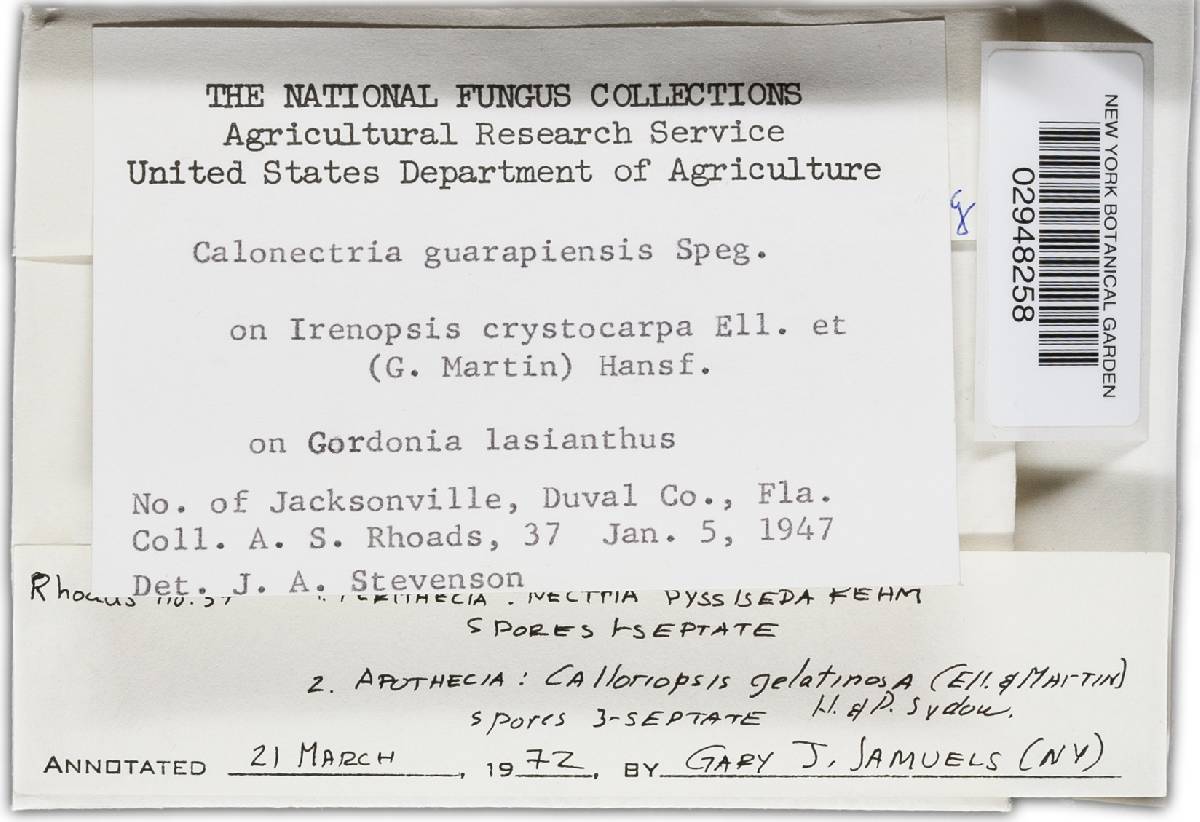 THE NATIONAL FUNGUS COLLECTIONS
Agricultural Research Service
United States Department of Agriculture
Calonectria guarapiensis Speg.
on Irenopsis crystocarpa Ell. et
(G. Martin) Hansf.
on Gordonia lasianthus
No. of Jacksonville, Duval Co., Fla.
Coll. A. S. Rhoads, 37 Jan. 5, 1947
Det. J. A. Stevenson
NEW YORK BOTANICAL GARDEN
02948258
Rhoads no. 37 1. PERITHECIA : NECTRIA BYSSISEDA REHM
SPORES 1-SEPTATE
2. APOTHECIA : CAlloriopsis gelatinosA (Ell. & MARTIN)
H. & P. Sydow.
spores 3-SEPTATE
ANNOTATED 21 MARCH, 1972, BY GARY J. SAMUELS (NY)